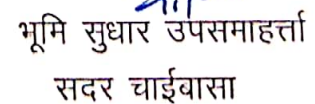 भूमि सुधार उपसमाहर्त्ता
सदर चाईबासा